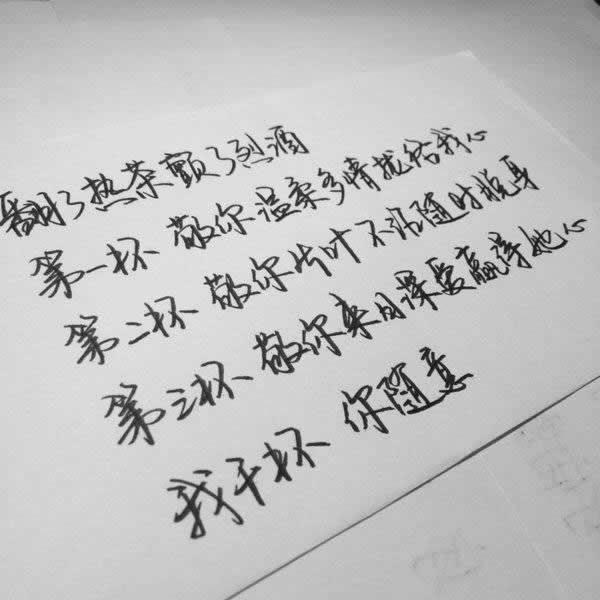 翻了热茶 颠了烈酒
第一杯 敬你温柔多情扰给我心
第二杯 敬你片叶不沾随时脱身
第三杯 敬你来日深爱赢得她心
我干杯 你随意